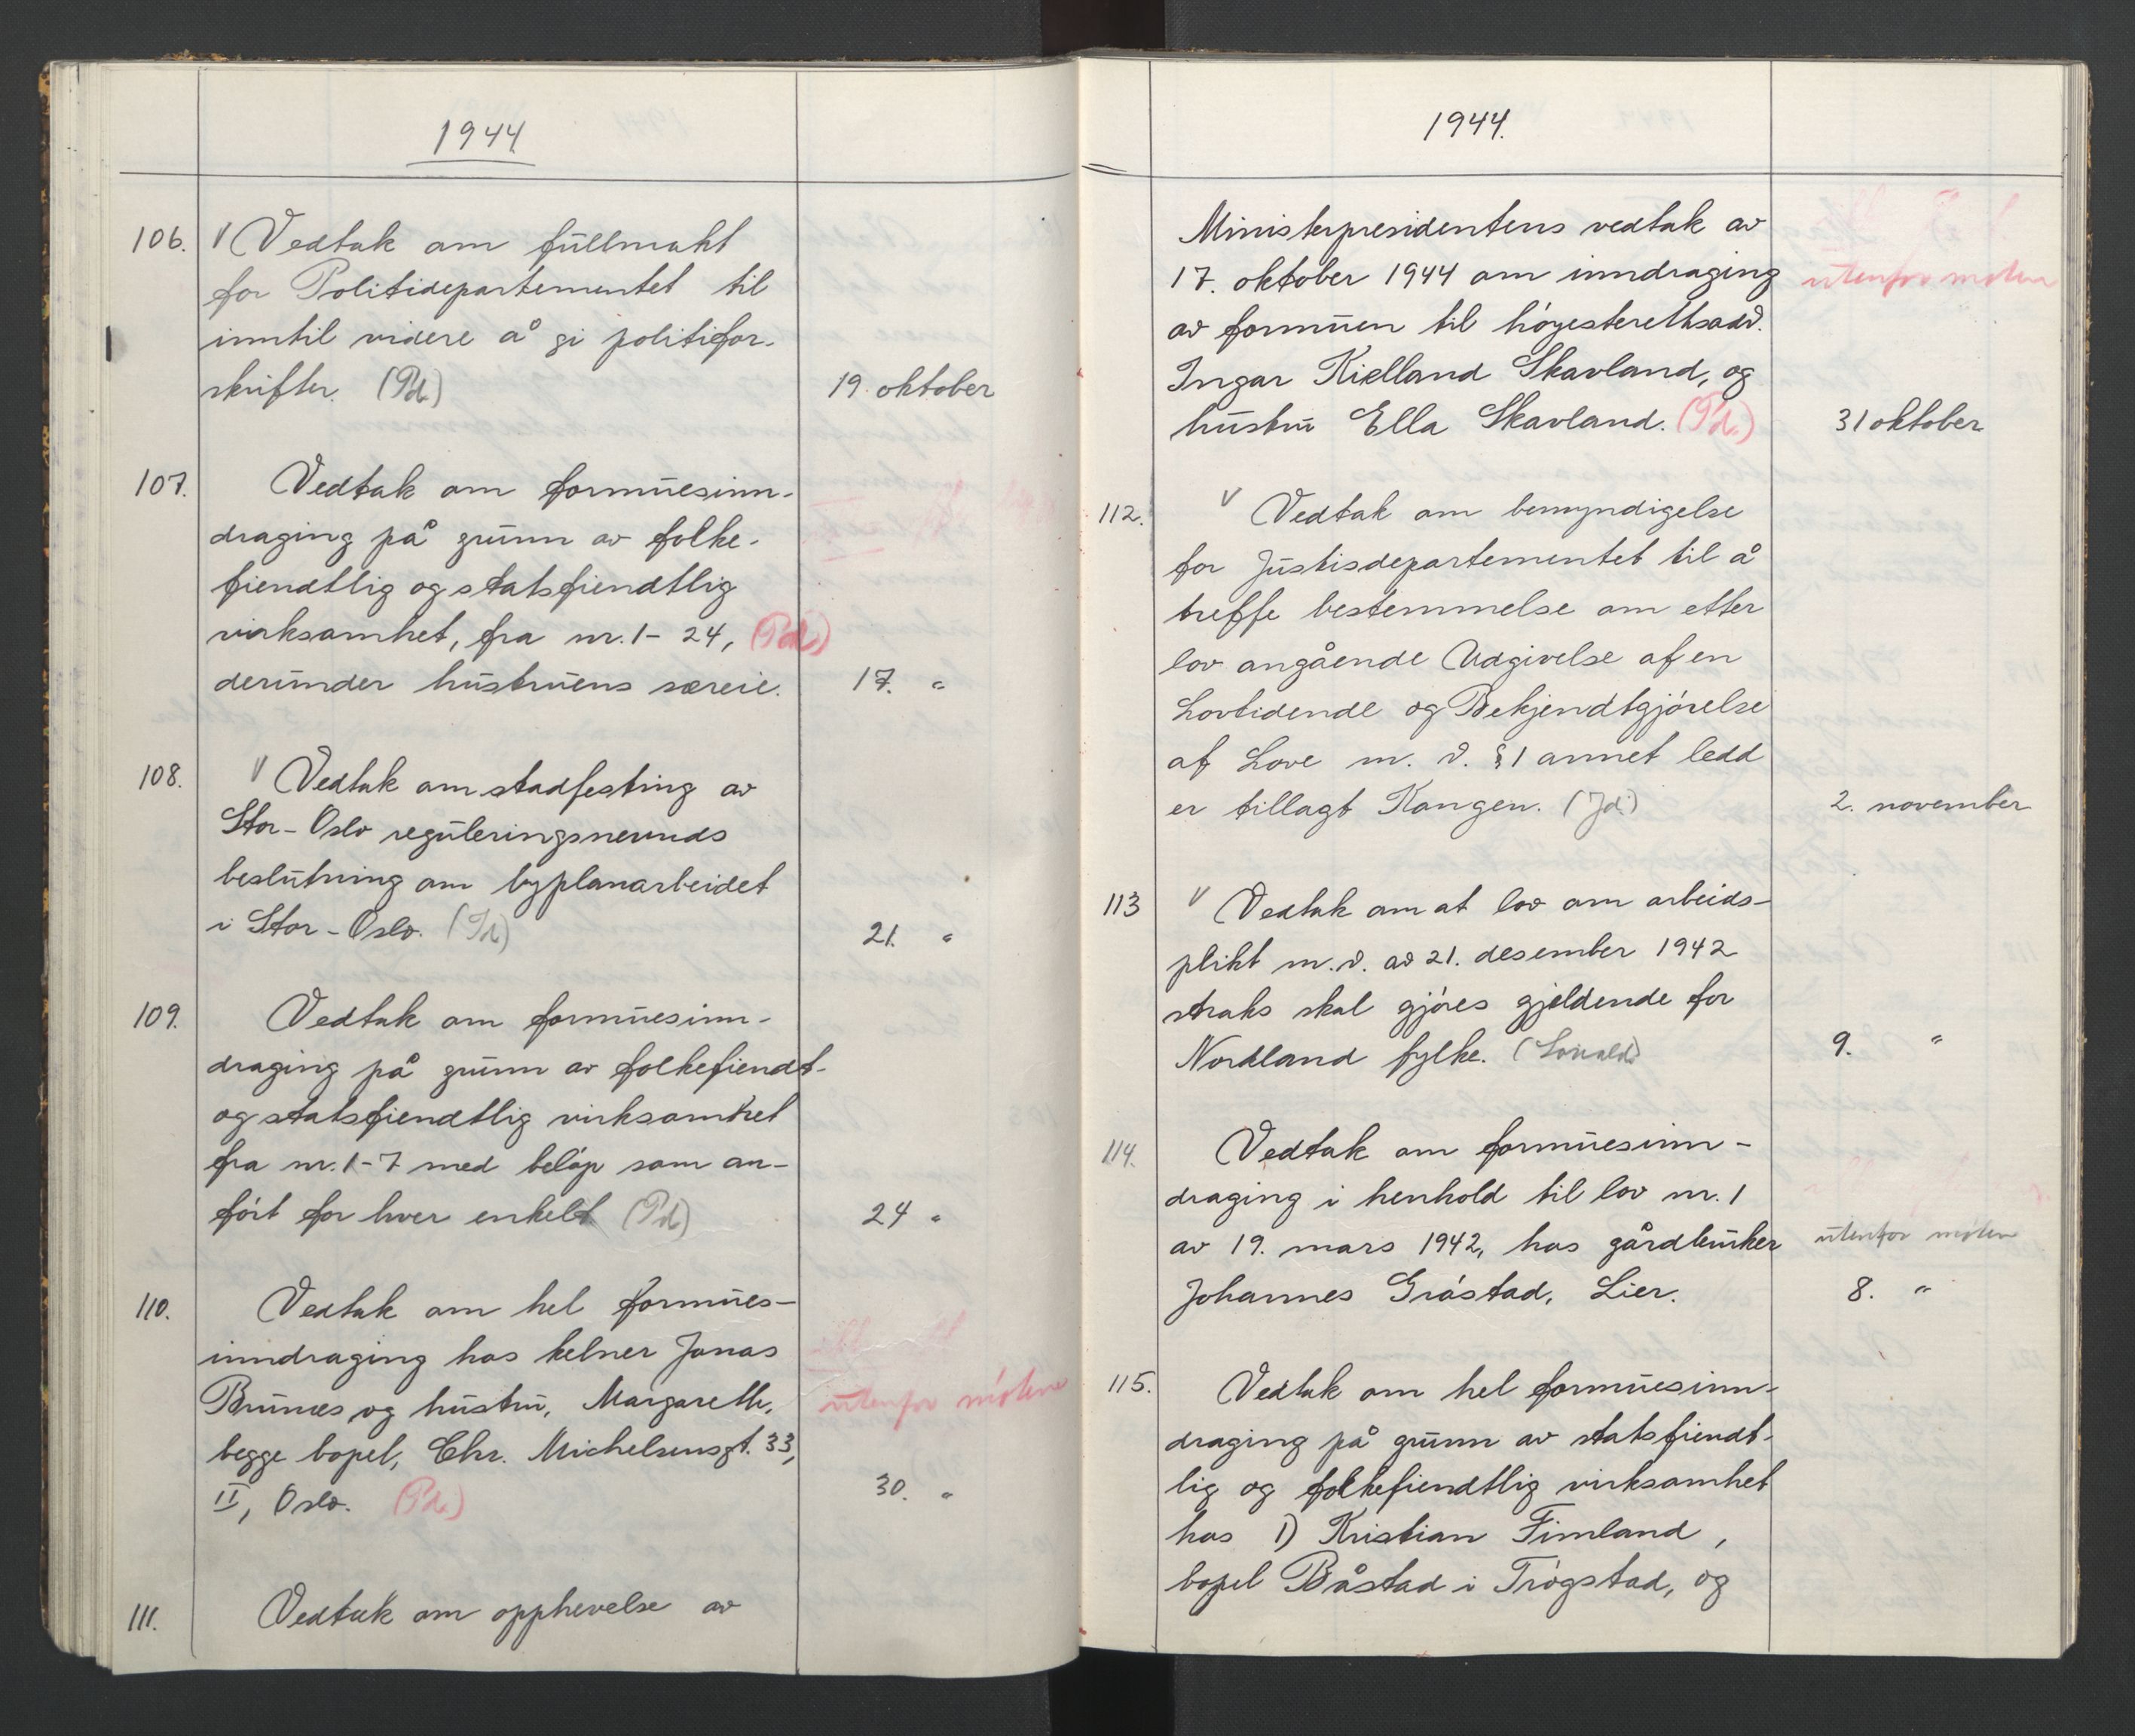 1944.
106. V Vedtak om fullmakt
for Politidepartementet til
inntil videre å gi politifor-
skrifter. (Pd.) 19. oktober
107. Vedtak om formuesinn-
draging på grunn av folke-
fiendtlig og statsfiendtlig
virksomhet, fra nr. 1- 24, (Pd.)
derunder hustruens særeie. 17. "
108. V Vedtak om stadfesting av
Stor-Oslo reguleringsnevnds
beslutning om byplanarbeidet
i Stor-Oslo. (Id.) 21. "
109. Vedtak om formuesinn-
draging på grunn av folkefiendt-
og statsfiendtlig virksomhet
fra nr. 1-7 med beløp som an-
ført for hver enkelt (Pd.) 24 "
110. Vedtak om hel formues-
inndraging hos kelner Jonas
Brunæs og hustru, Margarethe,
utenfor møtene
begge bopel, Chr. Michelsensgt. 33,
II, Oslo. (Pd.) 30. "
111. Vedtak om opphevelse av
1944.
Ministerpresidentens vedtak av
17. oktober 1944 om inndraging
utenfor møtene
av formuen til høyesterettsadv.
Ingar Kielland Skavland, og
hustru Ella Skavland. (Pd.) 31 oktober
112. V Vedtak om bemyndigelse
for Justisdepartementet til å
treffe bestemmelse om etter
lov angående Udgivelse af en
Lovtidende og Bekjendtgjørelse
af Love m. v. § 1 annet ledd
er tillagt Kongen. (Jd.) 2. november
113 V Vedtak om at lov om arbeids-
plikt m.v. av 21. desember 1942
straks skal gjøres gjeldende for
Nordland fylke. 9. "
114. Vedtak om formuesinn-
draging i henhold til lov nr. 1
av 19. mars 1942, hos gårdbruker
utenfor møtene
Johannes Gråstad, Lier. 8. "
115. Vedtak om hel formuesinn-
draging på grunn av statsfiendt-
lig og folkefiendtlig virksomhet
hos 1) Kristian Fimland,
bopel Båstad i Trøgstad, og